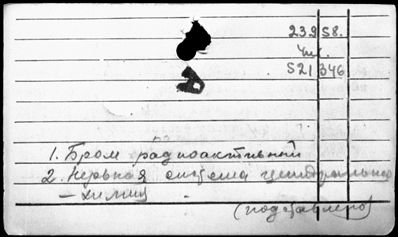 23958.
S21346
1. Бром радиоактивный
2. Нервная система центральная
— химия
(подставлено)